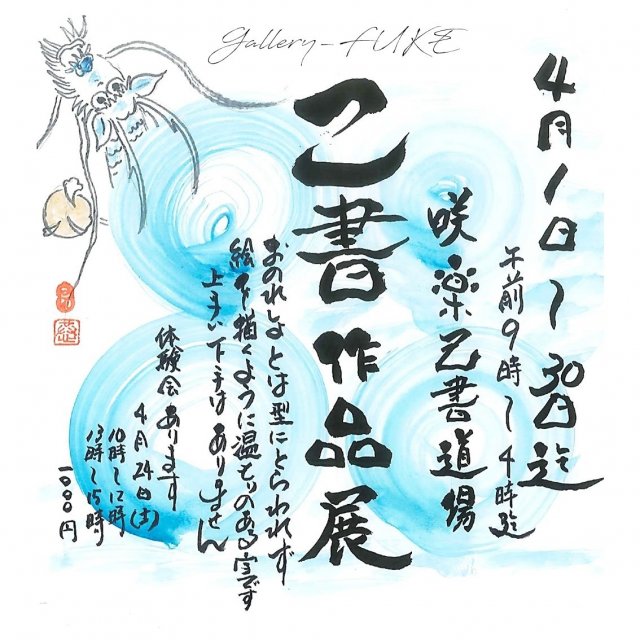 Gallery-FUKE
4月1日〜30日迄
午前9時〜4時迄
咲楽己書道場
己書作品展
おのれしょとは型にとらわれず
絵を描くように温もりのある字です
上手い下手はありません
体験会あります
4月24日(土)
10時〜12時
13時〜15時
1000円